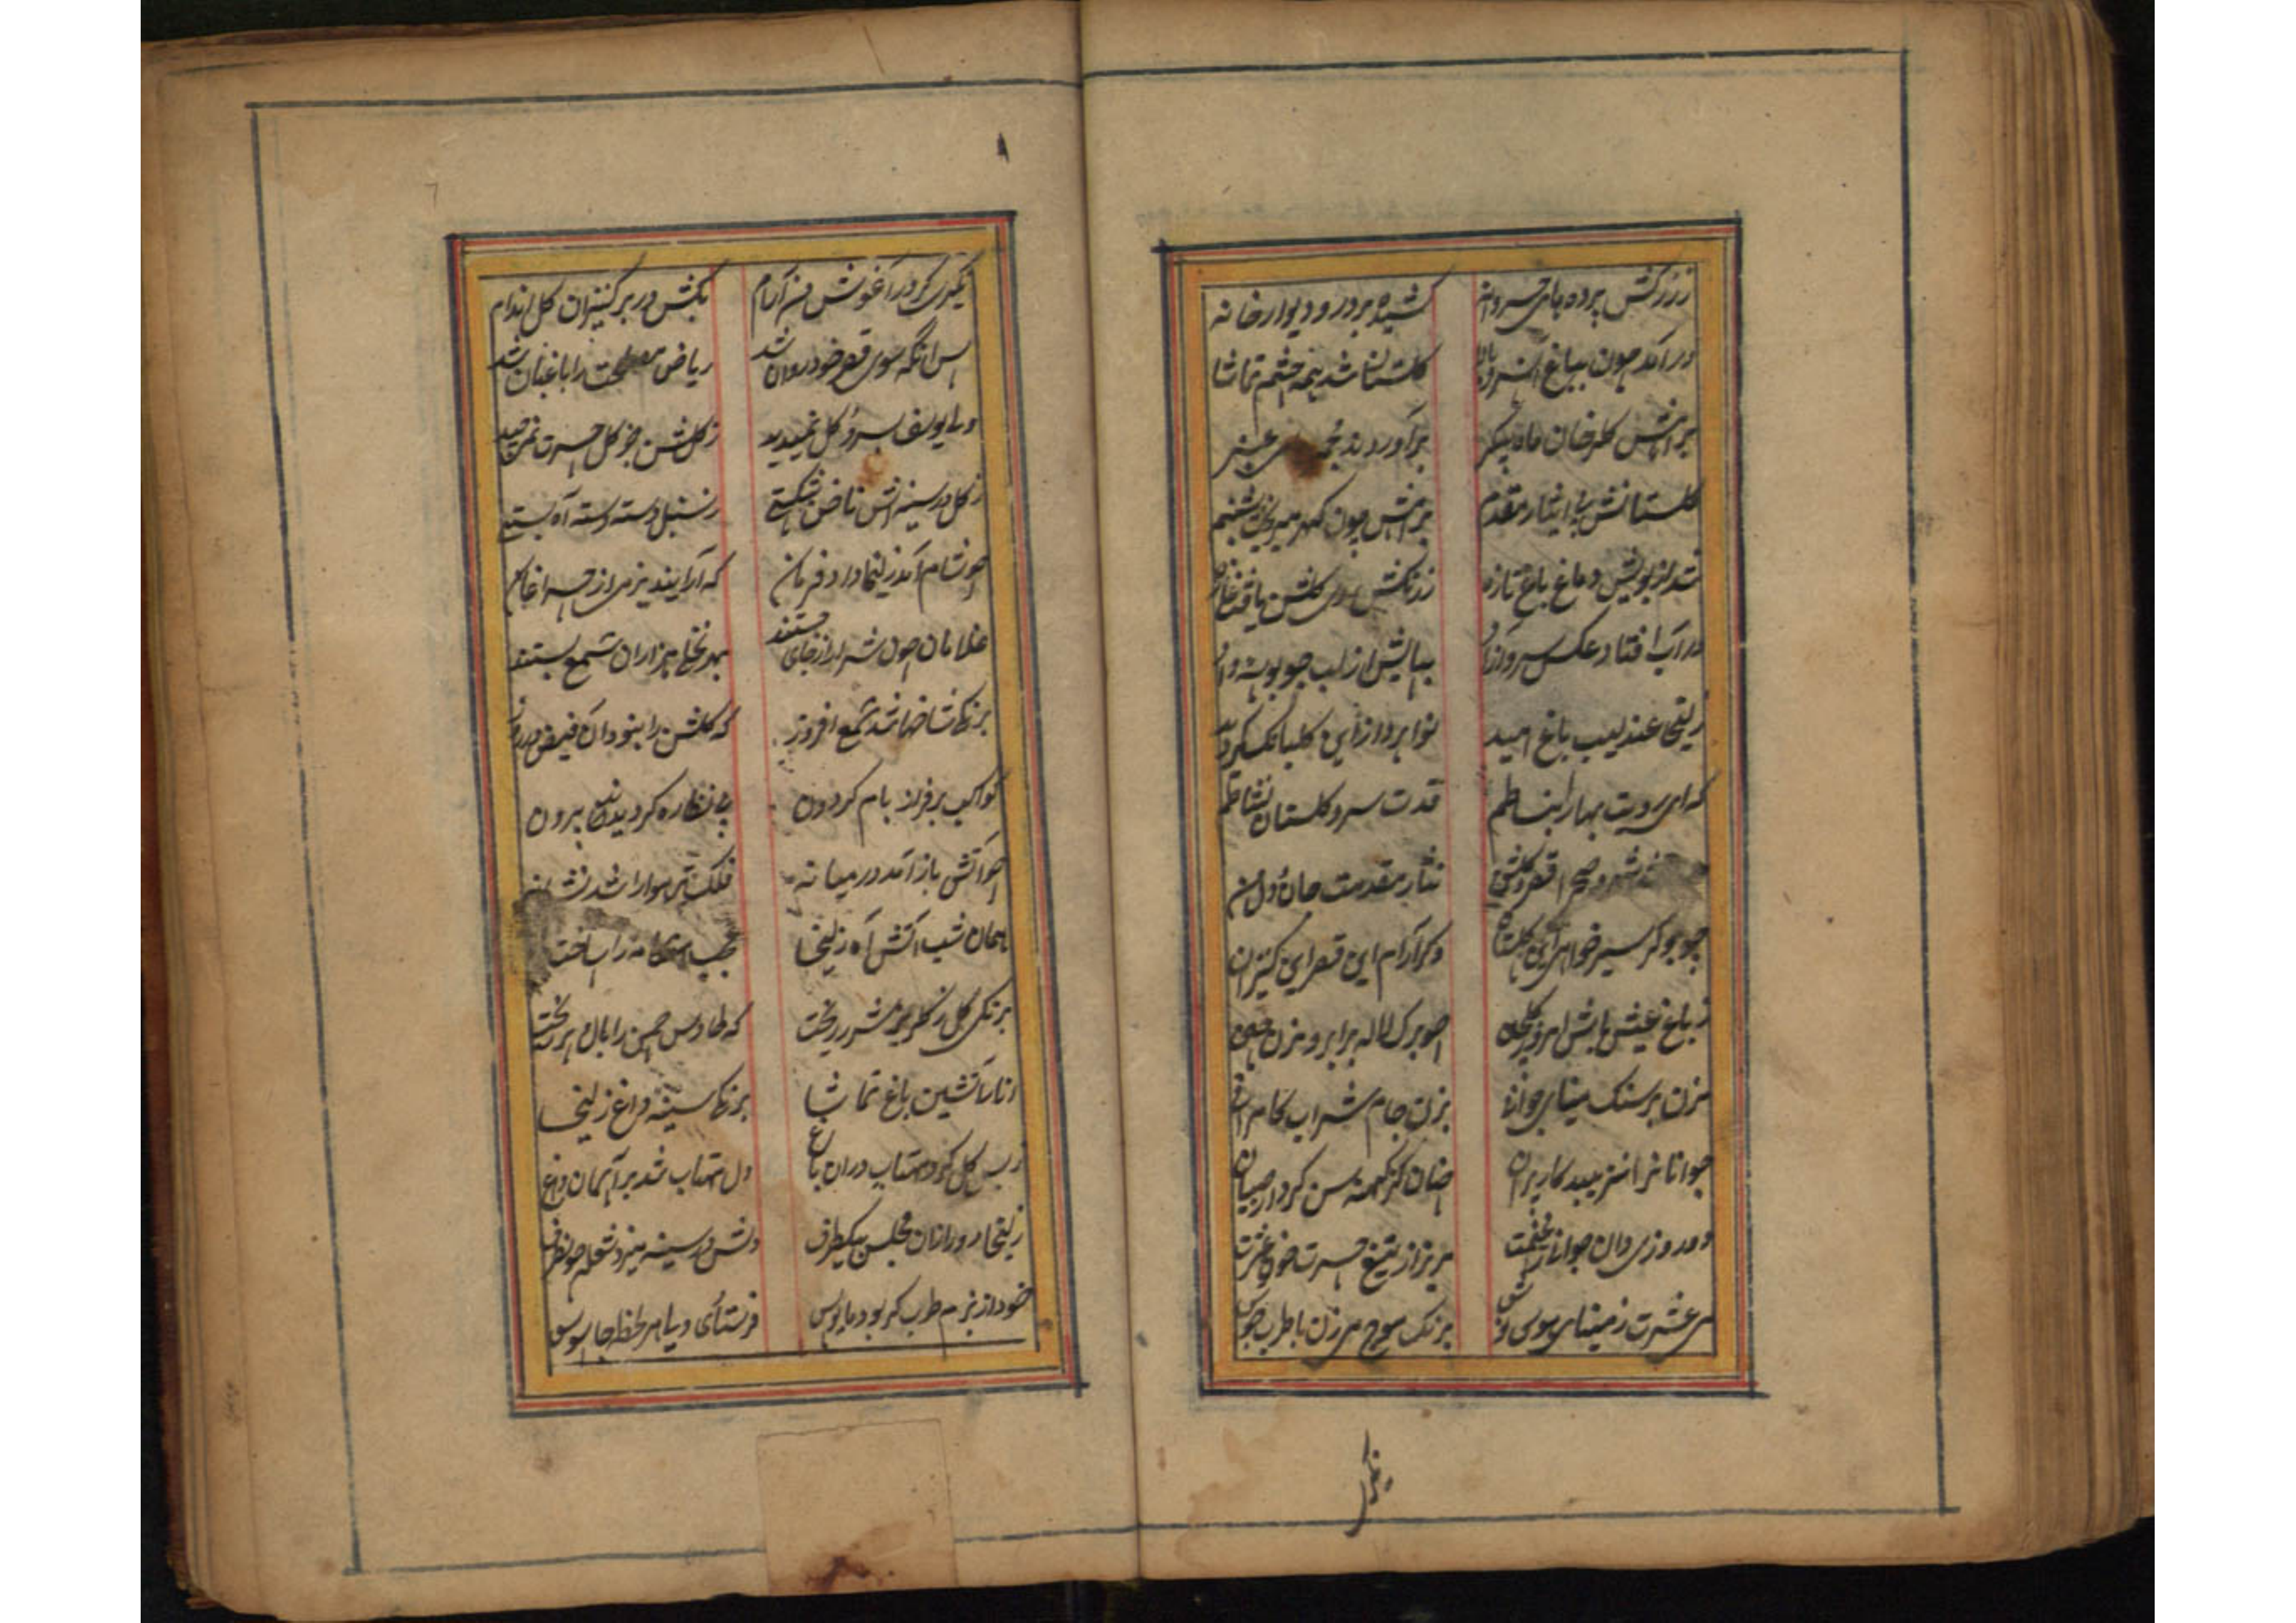 ززرکش پرده های خسروانه کشیده بر در و دیوار خانه
در آمد چون بباغ آن سرو بالا گلستان شد همه چشم تماشا
براهش گلرخان ماه پیکر برآوردند
گلستانش پی ایثار مقدم براهش چون گهر میریخت شبنم
شد از بویش دماغ باغ تازه ز رنگش روی گلشن یافت غازه
در آب افتاد عکس سرو آزاد بپایش از لب جو بوسه داد
زلیخا عندلیب باغ امید نوا پرداز این گلبانگ گردید
که ای رویت بهار انبساطم قدت سرو گلستان نشاطم
قصر و گلشن من نثار مقدمت جان و دل من
چو بو گر سیر خواهی این گلستان وگر آرام این قصر این کنیزان
ز باغ عیش باش امروز گلچین چو برگ لاله بر ابرو مزن چین
مزن بر سنگ مینای جوانی بزن جام شراب کامرانی
جوانانرا نزیبد کار پیران چنان کز کهنه سن کردار صبیان
دو روزی دان جوانی را غنیمت مریز از تیغ حسرت خون عشرت
می عشرت ز مینای هوس نوش برنگ موج می زن با طرب جوش
نگیری
۸
نگیری گر در آغوش من آرام بکش در بر کنیزان گل اندام
پس آنگه سوی قصر خود روان شد ریاض مصلحت را باغبان شد
ولی یوسف بسرو و گل نمیدید ز گلشن جز گل حسرت نمیچید
ز گل در سینه اش ناخن شکستی ز سنبل دسته دسته آه بستی
چو شام آمد زلیخا داد فرمان که آرایند بزمی از چراغان
غلامان چون شرار از جای جستند بهر نخلی هزاران شمع بستند
برنگی شاخها شد شمع افروز که گلشن را نبود آن فیض در روز
کواکب بر فراز بام گردون پی نظاره گردیدند بیرون
چو آتش باز آمد در میانه فلک تیر هوا را شد نشانه
همان شب آتش آه زلیخا عجب هنگامه را ساخت
برنگی گل ز گلریز شرر ریخت که طاوس چمن را بال و پر ریخت
انار آتشین باغ تماشا برنگ سینه داغ زلیخا
ز بس گل کرد مهتاب در آن باغ دل مهتاب شد بر آسمان داغ
زلیخا دور از آن مجلس بیکطرف دلش در سینه میزد شعله چون
خود از بزم طرب گر بود مایوس فرستادی ولی هر لحظه جاسوس